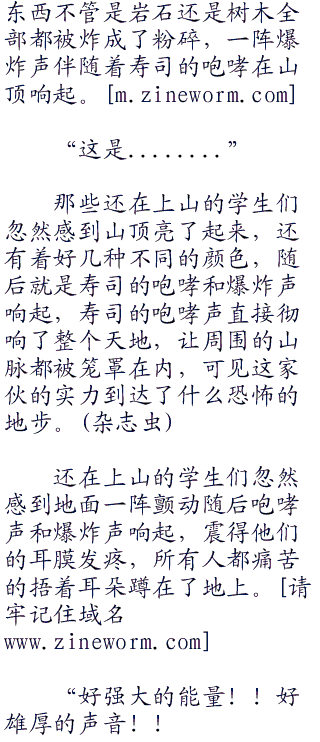 东西不管是岩石还是树木全
部都被炸成了粉碎，一阵爆
炸声伴随着寿司的咆哮在山
顶响起。[m.zineworm.com]
“这是........”
那些还在上山的学生们
忽然感到山顶亮了起来，还
有着好几种不同的颜色，随
后就是寿司的咆哮和爆炸声
响起，寿司的咆哮声直接彻
响了整个天地，让周围的山
脉都被笼罩在内，可见这家
伙的实力到达了什么恐怖的
地步。(杂志虫)
还在上山的学生们忽然
感到地面一阵颤动随后咆哮
声和爆炸声响起，震得他们
的耳膜发疼，所有人都痛苦
的捂着耳朵蹲在了地上。[请
牢记住域名
www.zineworm.com]
“好强大的能量！！好
雄厚的声音！！